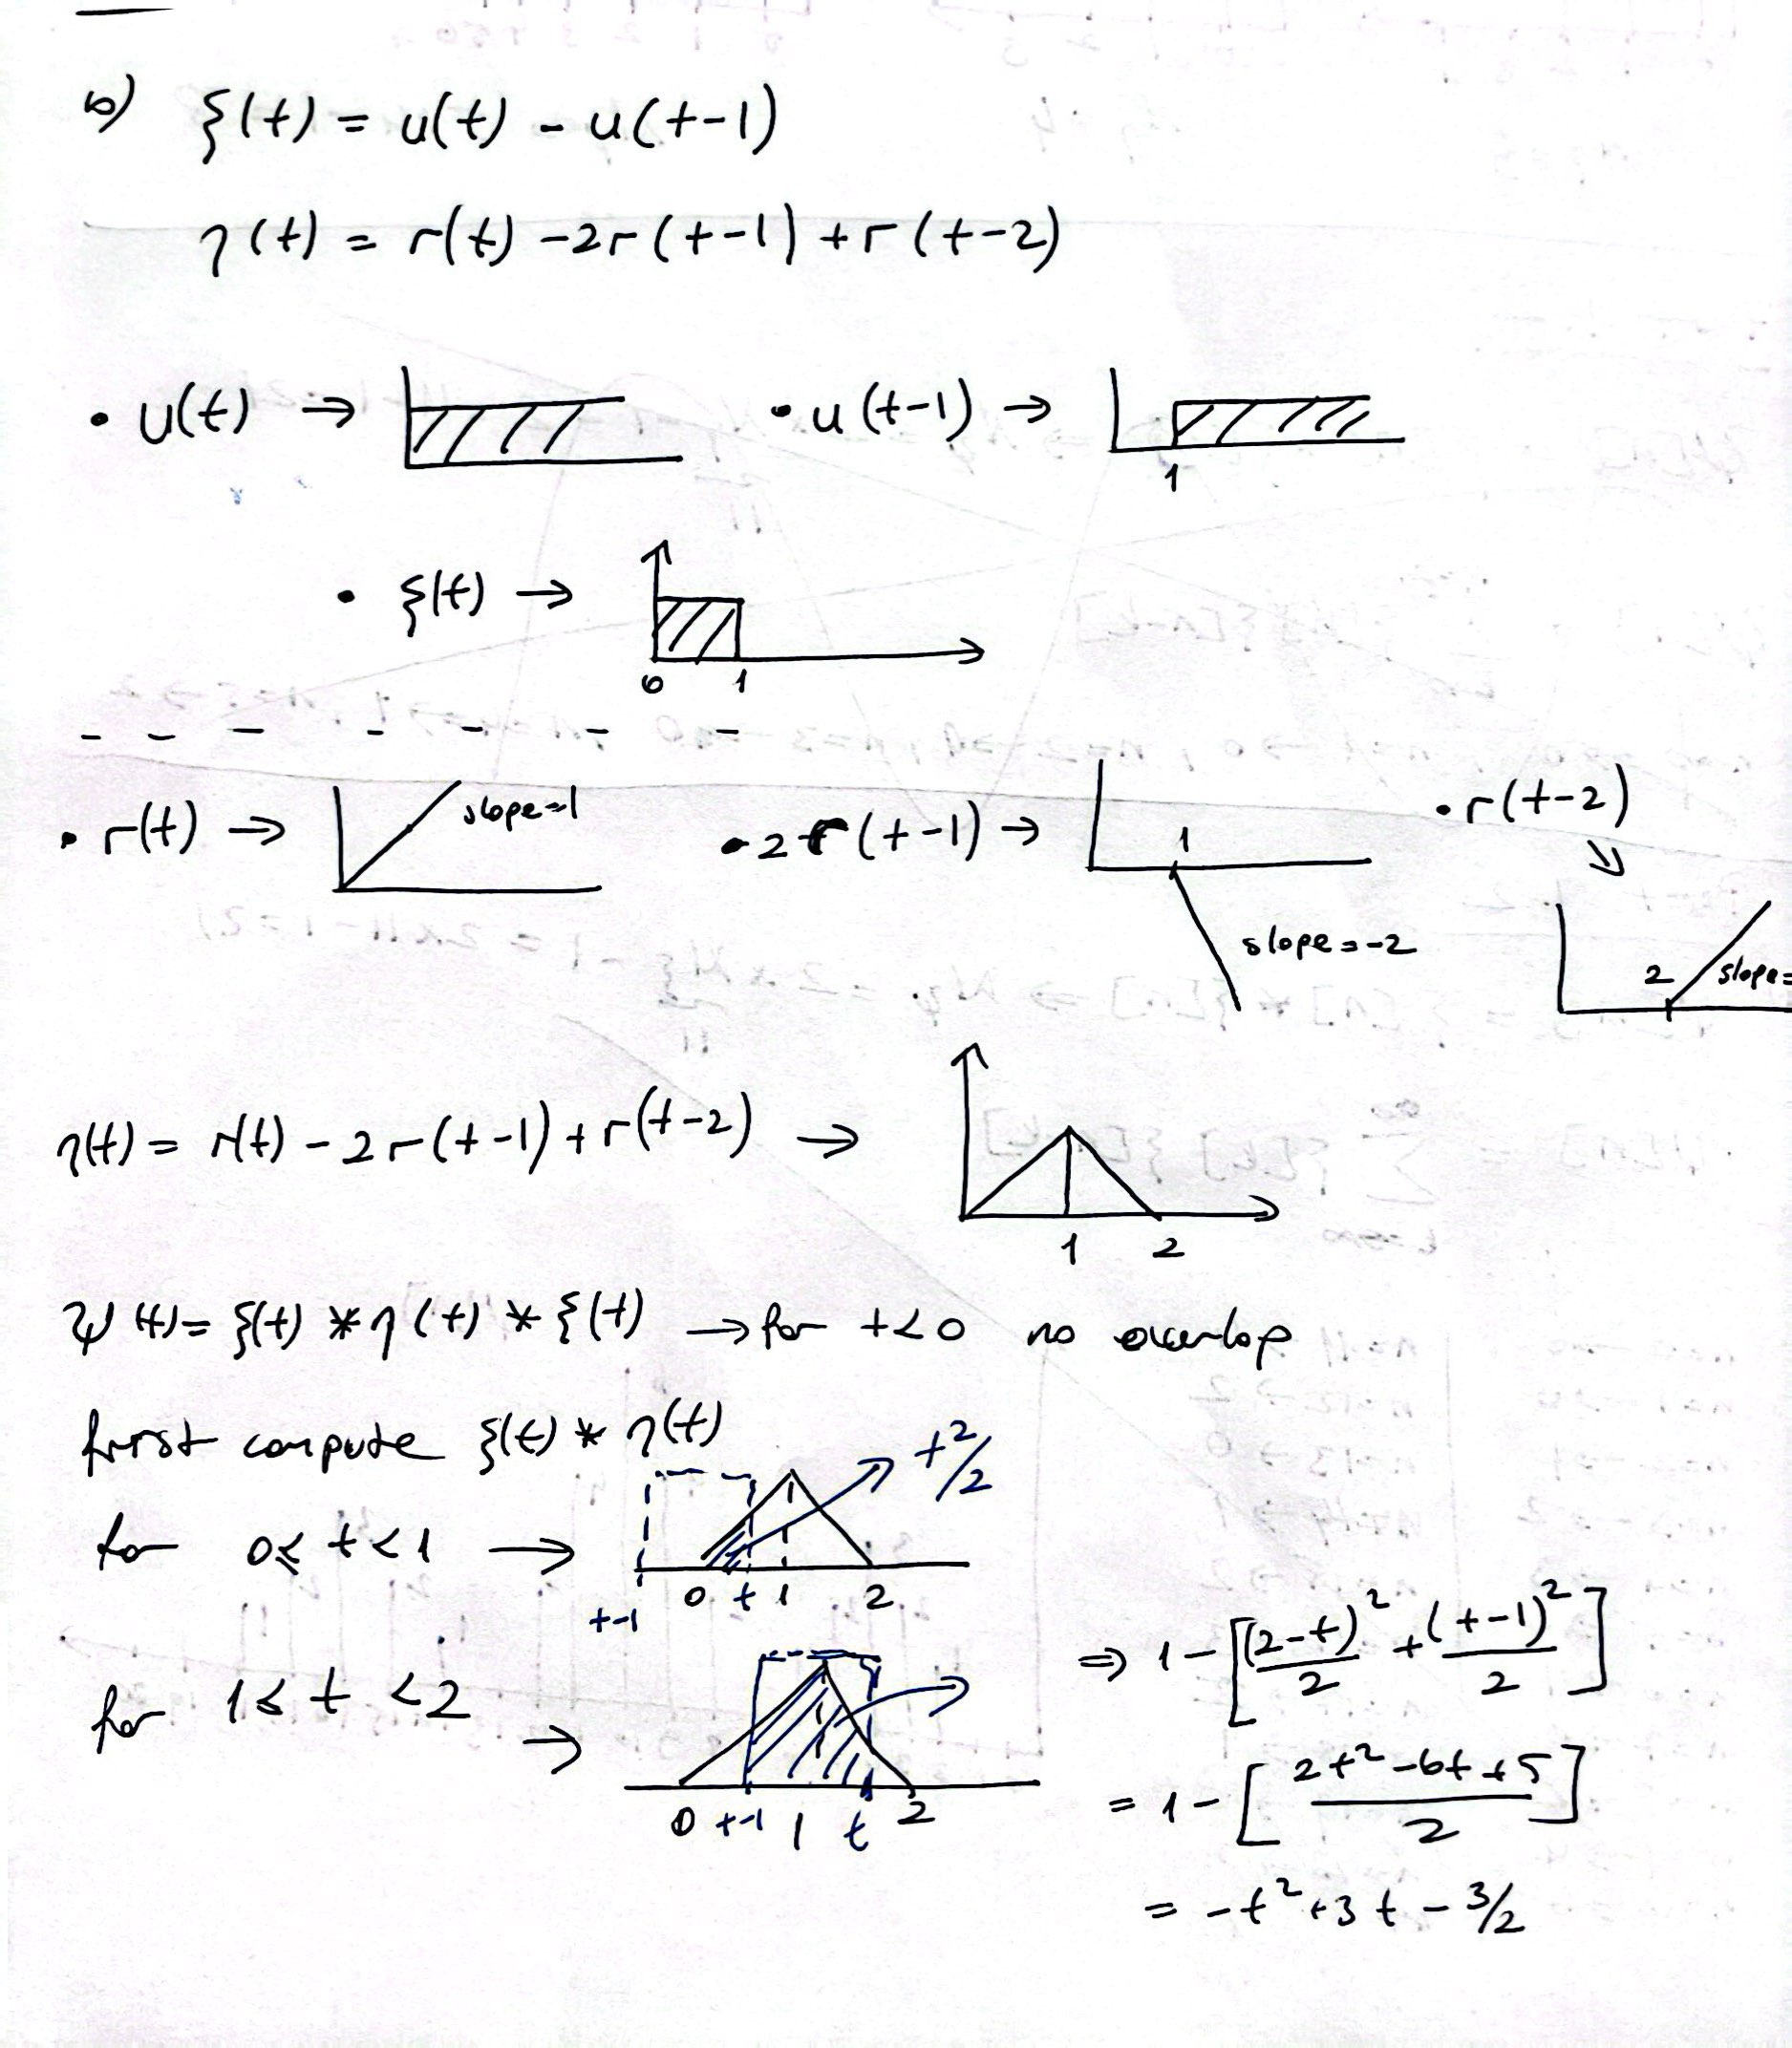 b) ξ(t) = u(t) - u(t-1)
η(t) = r(t) -2r(t-1) +r(t-2)
• u(t) → • u(t-1) →
1
• ξ(t) →
0 1
• r(t) → slope=1 • 2r(t-1) → 1 • r(t-2)
slope=-2 2 slope=
η(t) = r(t) - 2r(t-1) + r(t-2) →
1 2
ψ(t) = ξ(t) * η(t) * ξ(t) → for t<0 no overlap
first compute ξ(t) * η(t)
t²/2
for 0≤ t<1 →
t-1 0 t 1 2
for 1≤ t <2 → ⇒ 1-[(2-t)²/2 + (t-1)²/2]
0 t-1 1 t 2
= 1-[(2t²-6t+5)/2]
= -t²+3t-3/2